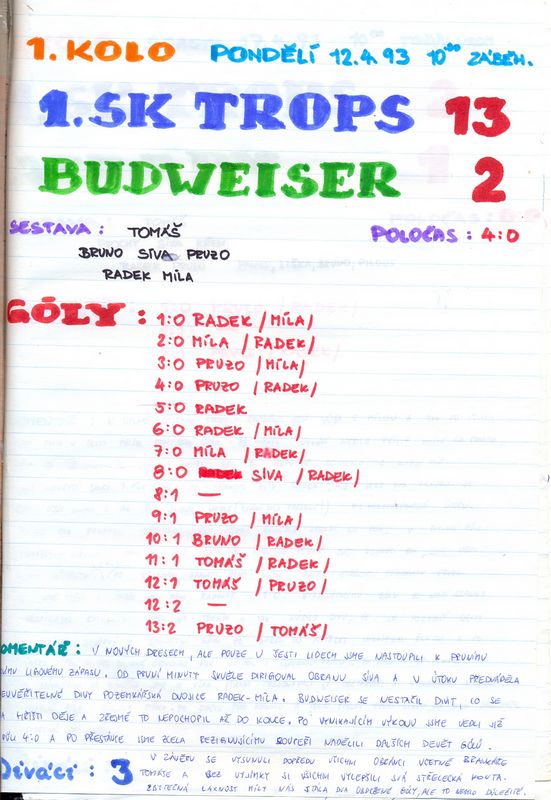 1. KOLO PONDĚLÍ 12.4.93 10³⁰ ZÁBĚH.
1.SK TROPS 13
BUDWEISER 2
SESTAVA : TOMÁŠ POLOČAS : 4:0
BRUNO SÍVA PRUZO
RADEK MÍLA
GÓLY : 1:0 RADEK /MÍLA/
2:0 MÍLA /RADEK/
3:0 PRUZO /MÍLA/
4:0 PRUZO /RADEK/
5:0 RADEK
6:0 RADEK /MÍLA/
7:0 MÍLA /RADEK/
8:0 SÍVA /RADEK/
8:1 —
9:1 PRUZO /MÍLA/
10:1 BRUNO /RADEK/
11:1 TOMÁŠ /RADEK/
12:1 TOMÁŠ /PRUZO/
12:2 —
13:2 PRUZO /TOMÁŠ/
OMENTÁŘ : V NOVÝCH DRESECH, ALE POUZE V ŠESTI LIDECH JSME NASTOUPILI K PRVNÍMU
LIGOVÉMU ZÁPASU. OD PRVNÍ MINUTY SKVĚLE DIRIGOVAL OBRANU SÍVA A V ÚTOKU PŘEDVÁDĚLA
EUVĚŘITELNÉ DIVY POZEMKÁŘSKÁ DVOJICE RADEK-MÍLA. BUDWEISER SE NESTAČIL DIVIT, CO SE
A HŘIŠTI DĚJE A ZŘEJMĚ TO NEPOCHOPIL AŽ DO KONCE. PO VYNIKAJÍCÍM VÝKONU JSME VEDLI JIŽ
PŮLI 4:0 A PO PŘESTÁVCE JSME ZCELA REZIGNUJÍCÍMU SOUPEŘI NADĚLILI DALŠÍCH DEVĚT GÓLŮ.
V ZÁVĚRU SE VYSUNULI DOPŘEDU VŠICHNI OBRÁNCI VČETNĚ BRANKÁŘE
DIVÁCI : 3 TOMÁŠE A BEZ VÝJIMKY SI VŠICHNI VYLEPŠILI SVÁ STŘELECKÁ KONTA.
ZBYTEČNÁ LAXNOST MÍLY NÁS STÁLA DVA OBDRŽENÉ GÓLY, ALE TO NEBYLO DŮLEŽITÉ.